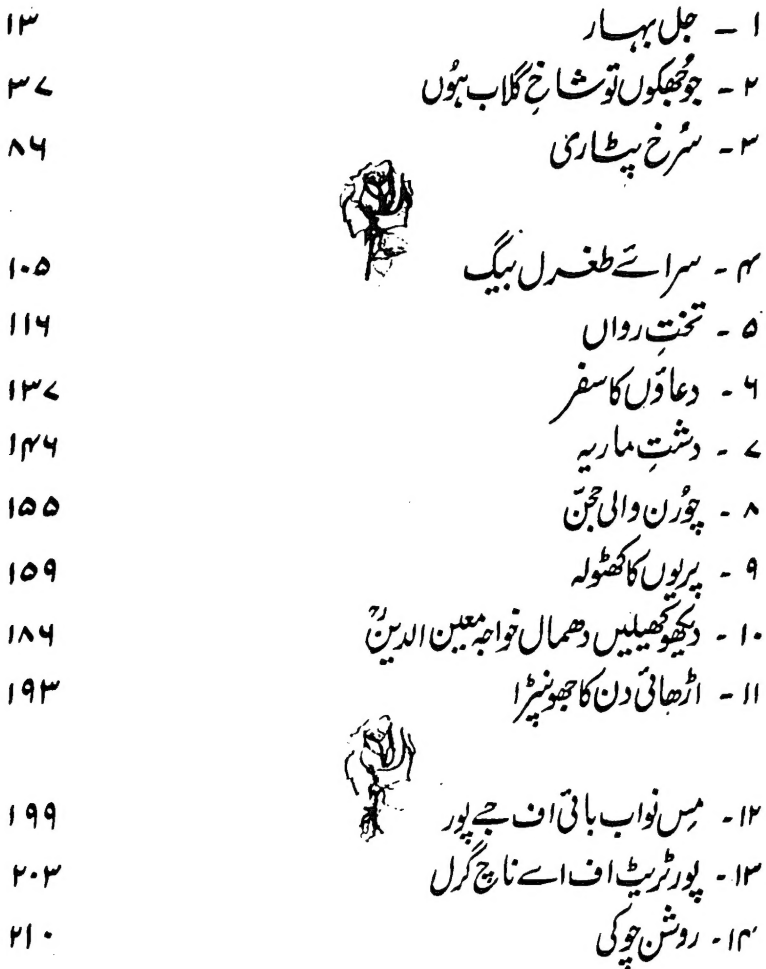 ۱ - جل بہار ۱۳
۲ - جو جُھکوں تو شاخِ گلاب ہوُں ۳۷
۳ - سُرخ پٹاری ۸۶
۴ - سرائے طغرل بیگ ۱۰۵
۵ - تختِ رواں ۱۱۶
۶ - دعاؤں کا سفر ۱۳۷
۷ - دشتِ ماریہ ۱۴۶
۸ - چوُرن والی حجّن ۱۵۵
۹ - پریوں کا کھٹولہ ۱۵۹
۱۰ - دیکھو کھیلیں دھمال خواجہ معین الدینؒ ۱۸۶
۱۱ - اڑھائی دن کا جھونپڑا ۱۹۳
۱۲ - مِس نواب بائی اف جے پور ۱۹۹
۱۳ - پورٹریٹ اف اے ناچ گرل ۲۰۳
۱۴ - روشن چوکی ۲۱۰